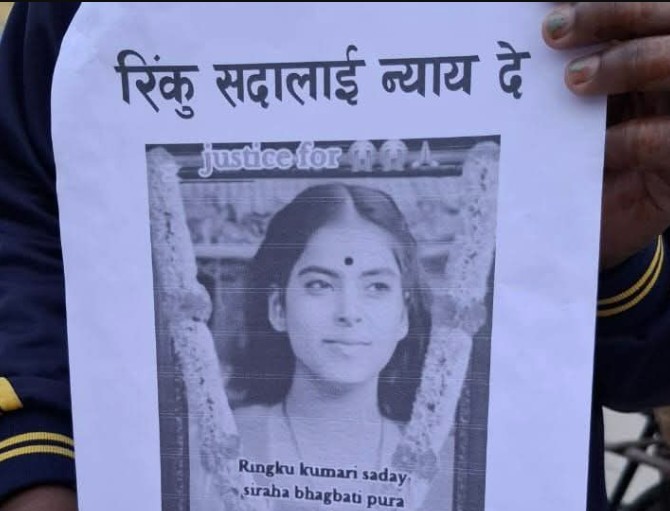 रिंकु सदालाई न्याय दे
justice for 😭😭🙏
Ringku kumari saday
siraha bhagbati pura